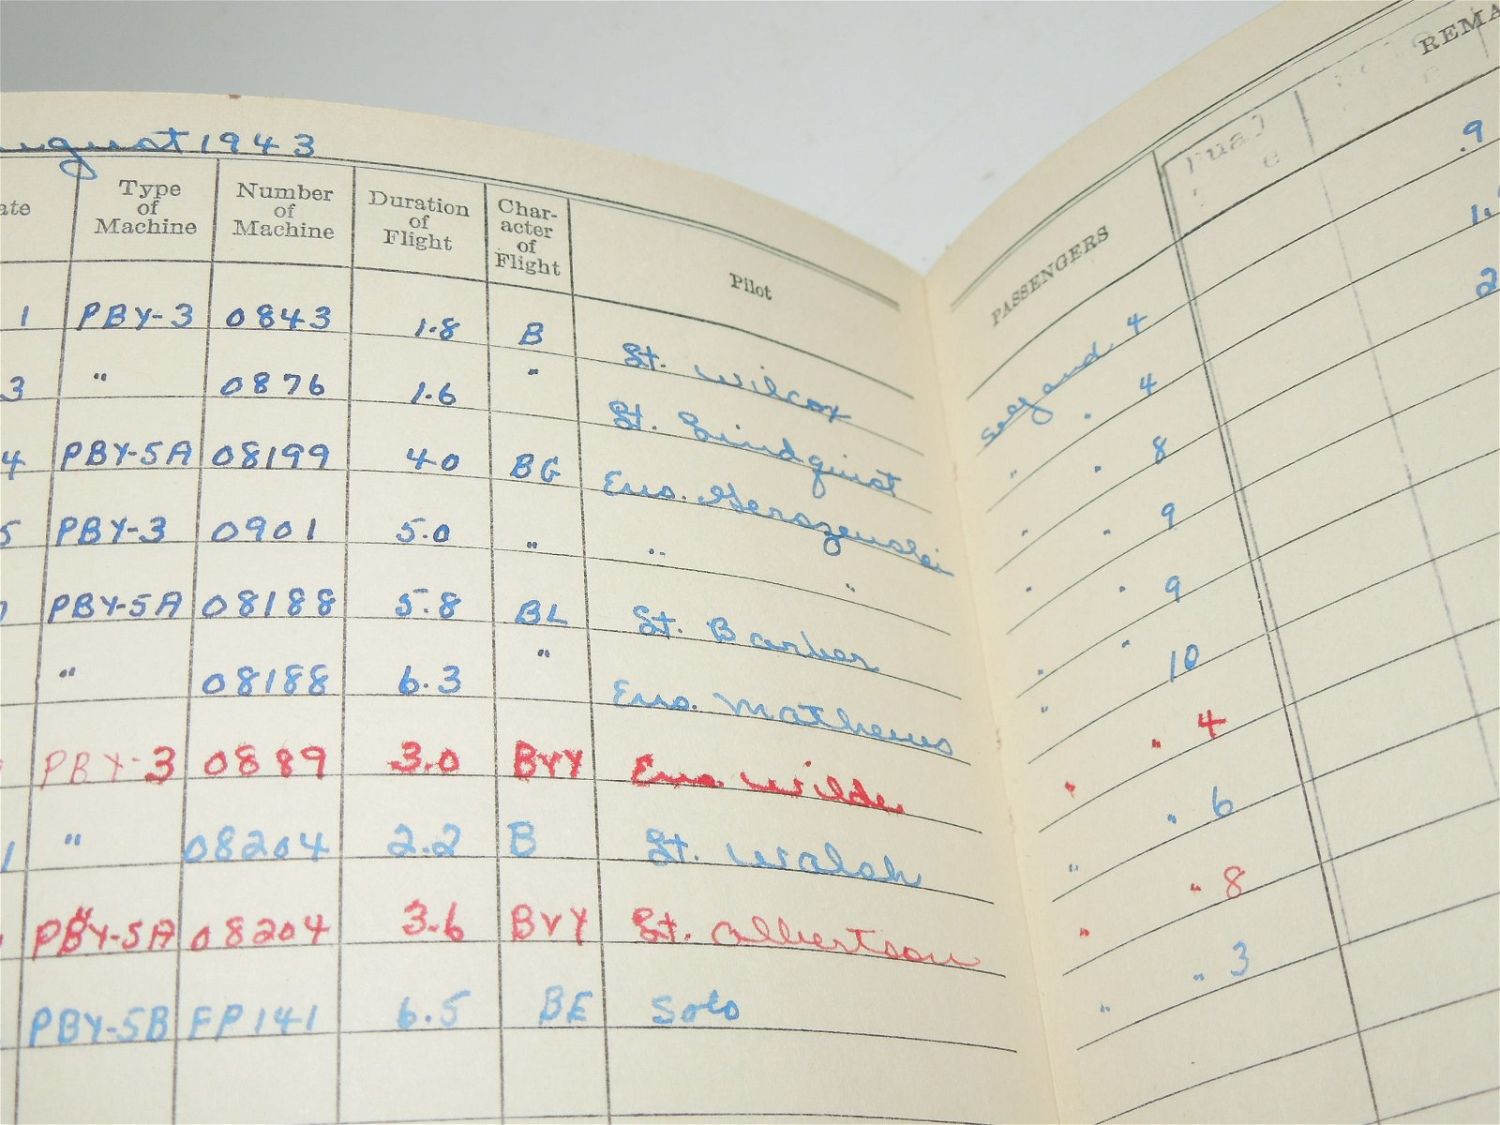 August 1943
ate Type of Machine Number of Machine Duration of Flight Char-acter of Flight Pilot PASSENGERS REMA
1 PBY-3 0843 1.8 B Lt. Wilcox Self and 4 .9
3 " 0876 1.6 " Lt. Lindquist " " 4
4 PBY-5A 08199 4.0 BG Ens. " " 8 2
5 PBY-3 0901 5.0 " " " " " 9
PBY-5A 08188 5.8 BL Lt. Barber " " 9
" 08188 6.3 " Ens. Mathews " " 10
PBY-3 0889 3.0 BVY Ens. Wilde " " 4
1 " 08204 2.2 B Lt. Walsh " " 6
PBY-5A 08204 3.6 BVY Lt. Albertson " " 8
PBY-5B FP141 6.5 BE Solo " " 3